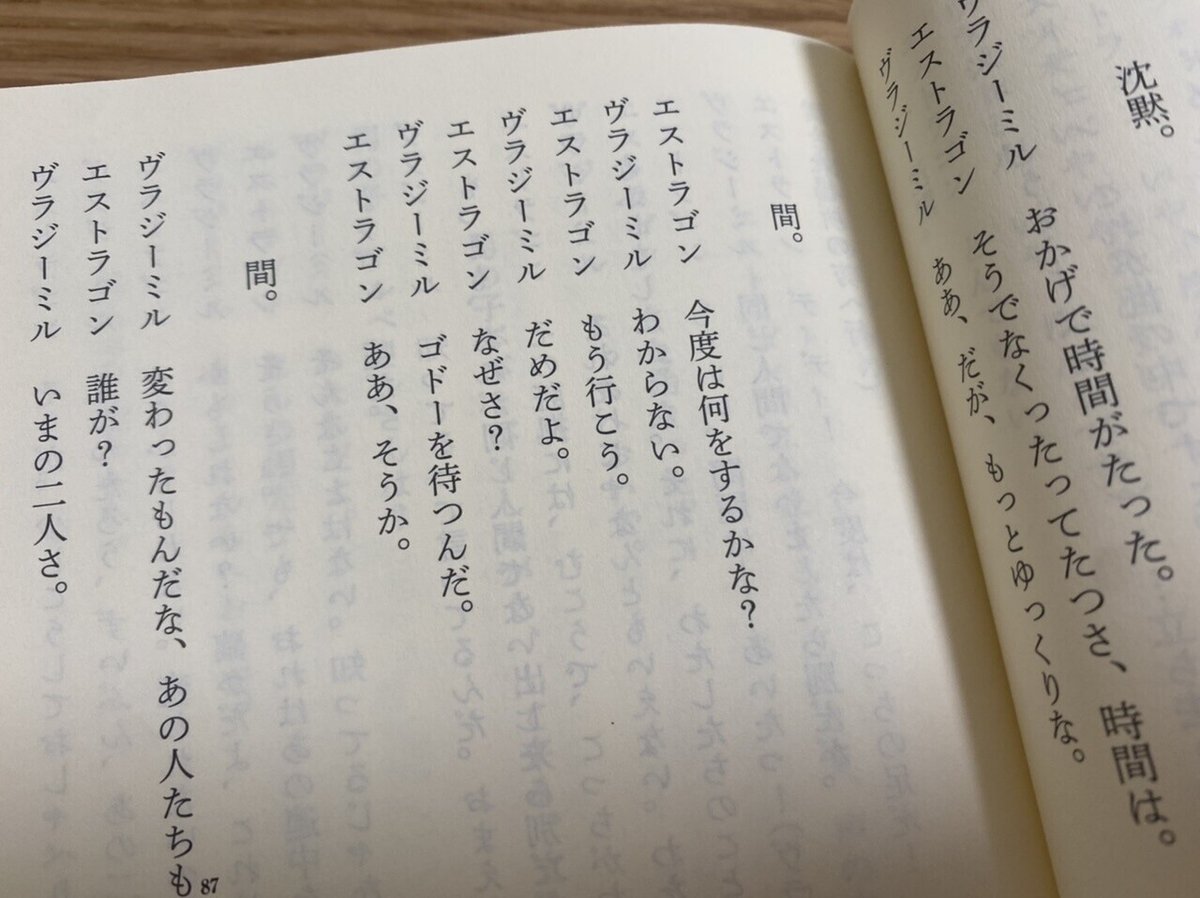 沈黙。
ヴラジーミル　おかげで時間がたった。
エストラゴン　そうでなくったってたつさ、時間は。
ヴラジーミル　ああ、だが、もっとゆっくりな。
間。
エストラゴン　今度は何をするかな？
ヴラジーミル　わからない。
エストラゴン　もう行こう。
ヴラジーミル　だめだよ。
エストラゴン　なぜさ？
ヴラジーミル　ゴドーを待つんだ。
エストラゴン　ああ、そうか。
間。
ヴラジーミル　変わったもんだな、あの人たちも
エストラゴン　誰が？
ヴラジーミル　いまの二人さ。
87